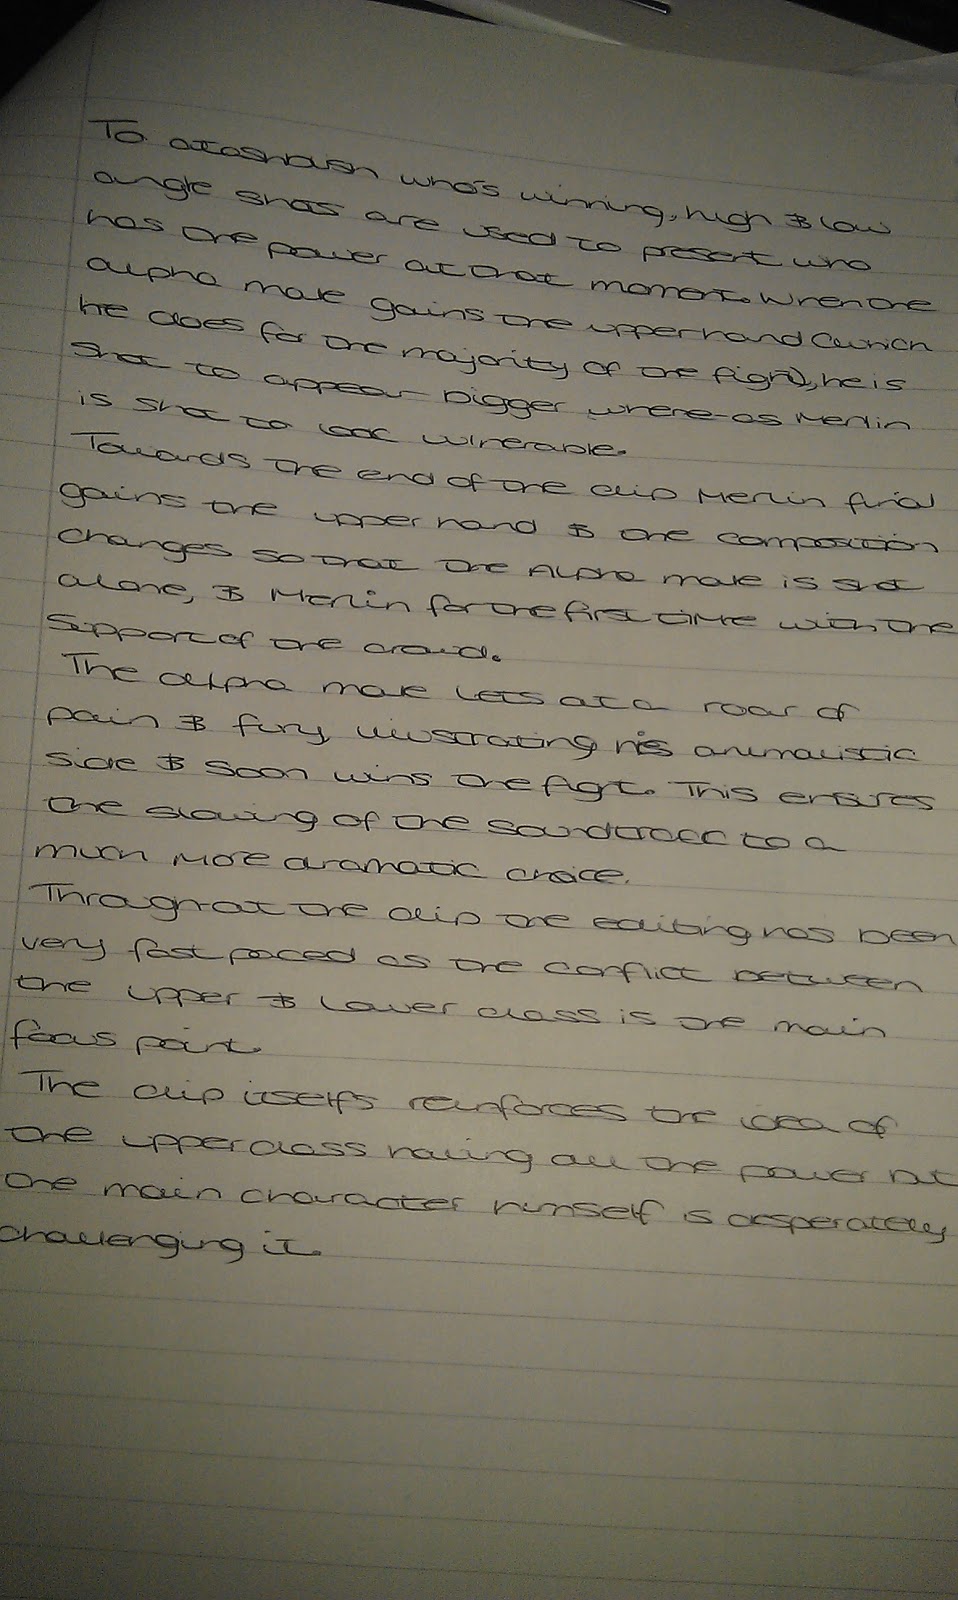 To establish who's winning, high & low
angle shots are used to present who
has the power at that moment. When the
alpha male gains the upper hand (which
he does for the majority of the fight), he is
shot to appear bigger where-as Merlin
is shot to look vulnerable.
Towards the end of the clip Merlin final
gains the upper hand & the composition
changes so that the Alpha male is shot
alone, & Merlin for the first time with the
support of the crowd.
The alpha male lets out a roar of
pain & fury, illustrating his animalistic
side & soon wins the fight. This ensures
the slowing of the soundtrack to a
much more dramatic choice.
Through-out the clip the editing has been
very fast paced as the conflict between
the upper & lower class is the main
focus point.
The clip itselfs reinforces the idea of
the upper class having all the power but
the main character himself is desperately
challenging it.